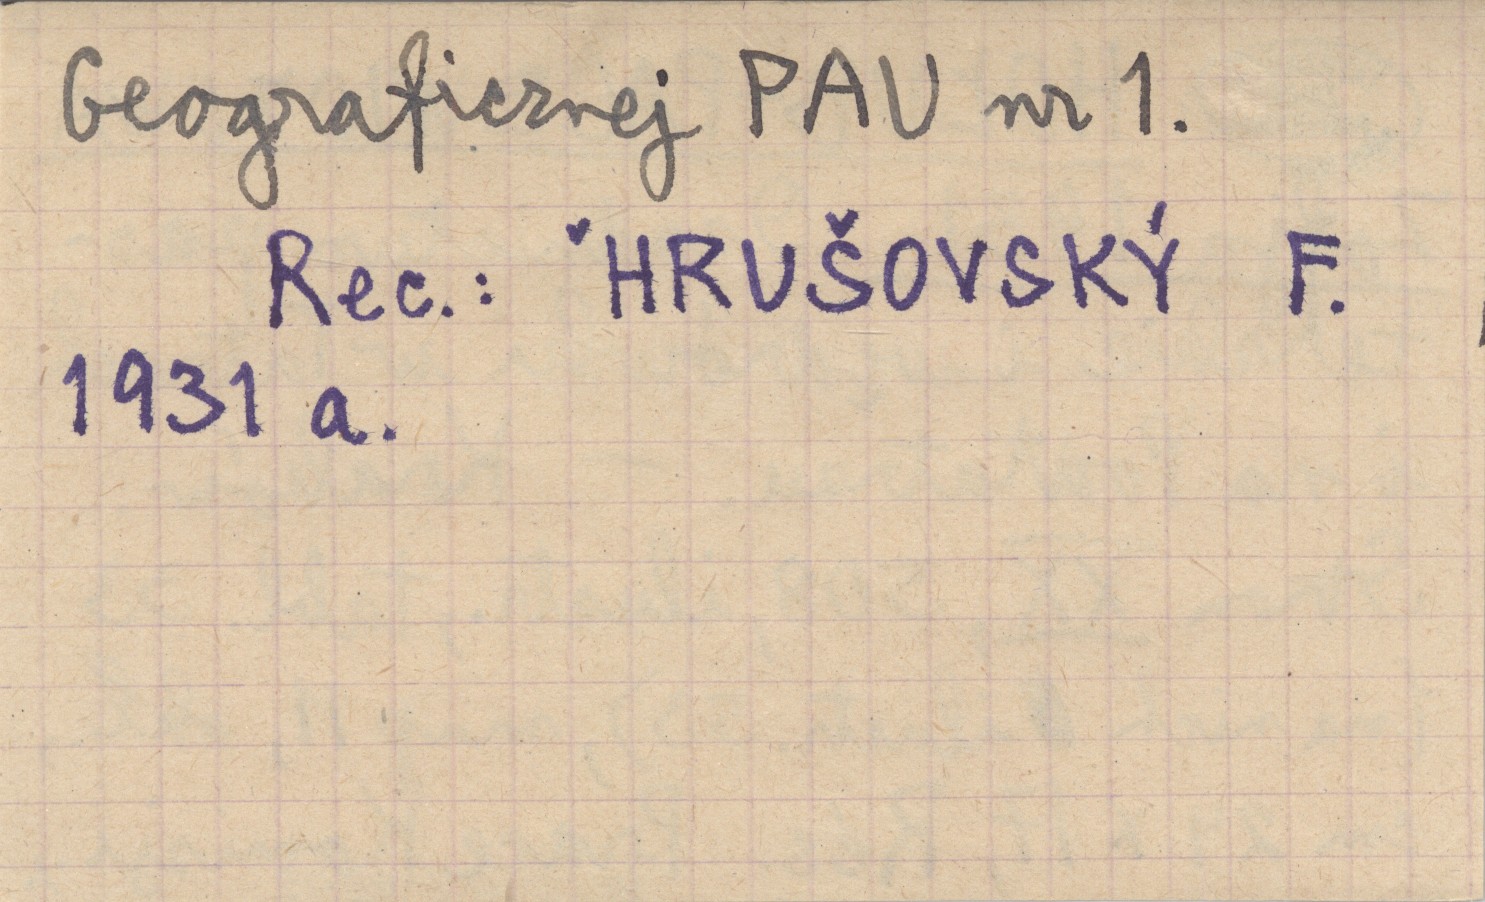 Geograficznej PAU nr 1.
Rec.: ˇHRUŠOVSKÝ F.
1931 a.